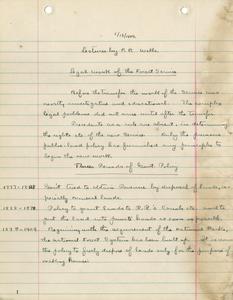 Lectures by P. P. Wells
Legal work of the Forest Service
Before the transfer the work of the Service was
mostly investigative and educational. The complex
legal problems did not arise until after the transfer.
Precedents as a rule are absent in determining
the rights etc of the new Service. Only the previous
public-land policy has furnished any principles to
begin the new work.
Three Periods of Govt. Policy
Gov't tried to obtain Revenue by disposal of lands, es-
pecially mineral lands.
Policy to grant lands to R.R.'s Canals etc. and to
put the land into private hands as soon as possible.
Beginning with the requirement of the National Parks,
the National Forest System has been built up. It is now
the policy to freely dispose of lands only for the purpose of
making Homes.